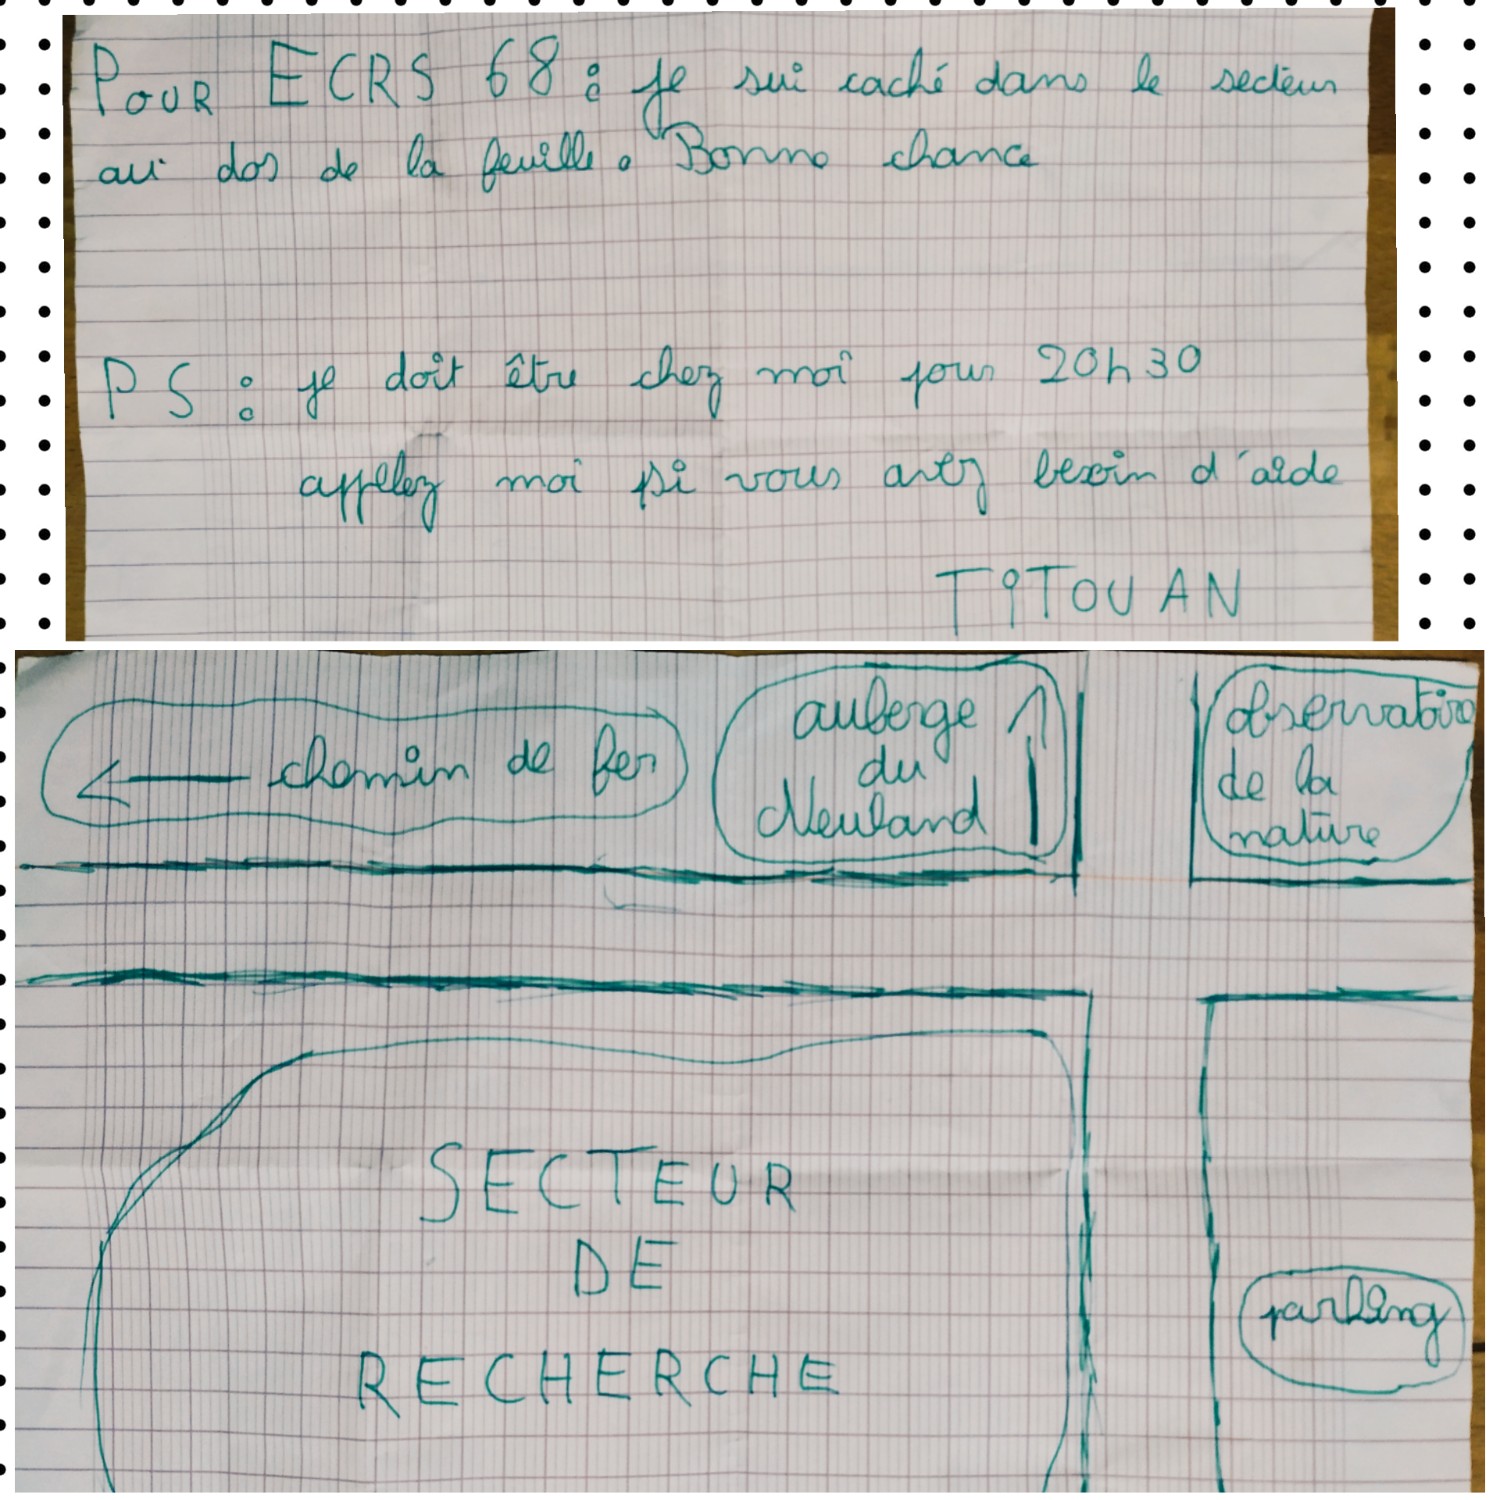 POUR ECRS 68 : je sui caché dans le secteur
au dos de la feuille. Bonne chance
PS : je doit être chez moi pour 20h30
appelez moi si vous avez besoin d'aide
TITOUAN
← chemin de fer
auberge ↑
du
Neuland
observatoire
de la
nature
SECTEUR
DE
RECHERCHE
parking